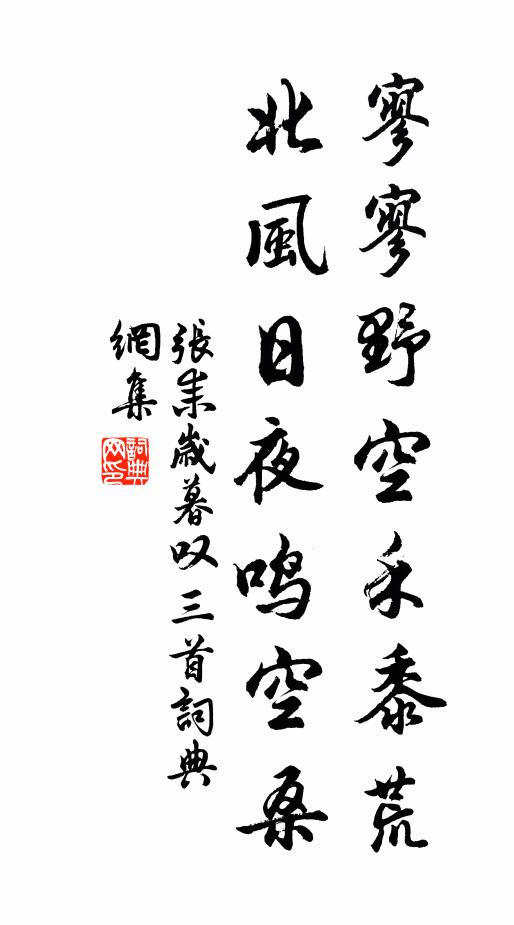 寥寥野空禾黍荒
北風日夜鸣空桑
張耒歲暮叹三首詞典
網集
詞典网印